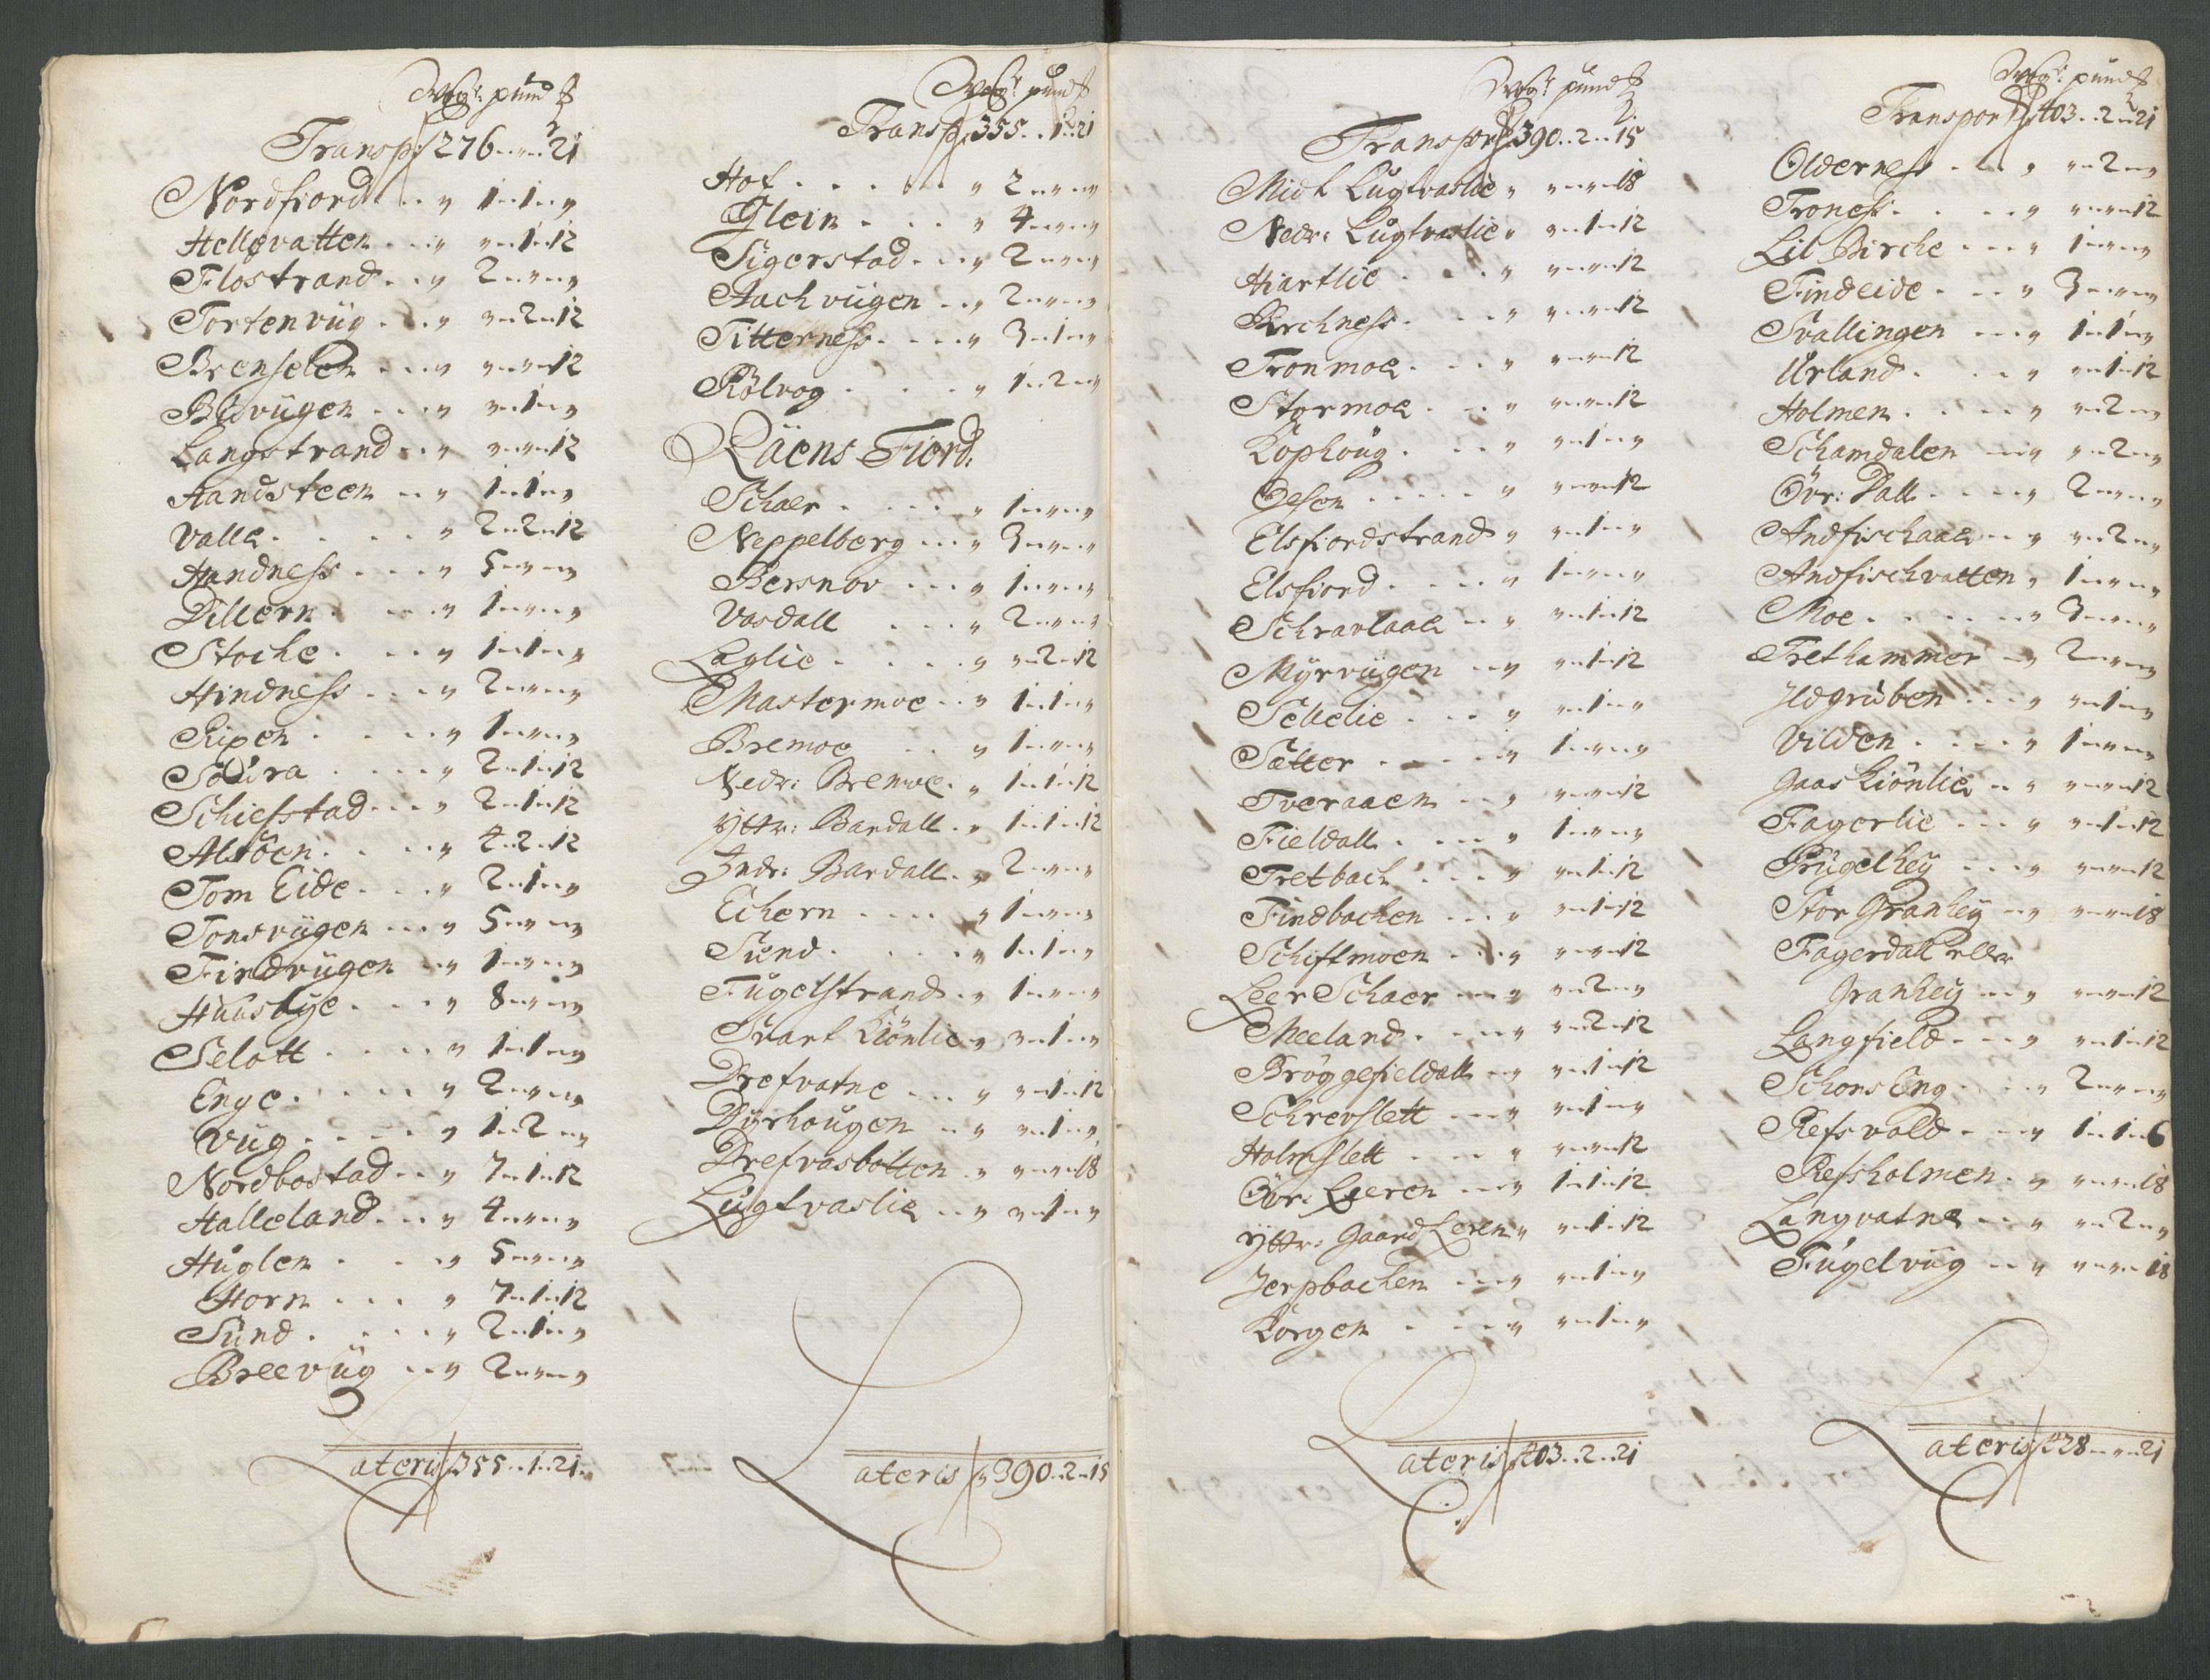 Wog: pund
Transp: 276 " 21
Nordfiord . . " 1 " 1 " "
Hellgvatten . . " " 1 " 12
Flostrand . . " 2 " " "
Tortenvüg . . " " 2 " 12
Brenselen . . " " " 12
Blivügen . . . " " 1 " "
Langstrand . . " " " 12
Aandsteen . . " 1 " 1 " "
Valla . . . " 2 " 2 " 12
Handness . . . " 5 " " "
Dillern . . . " 1 " " "
Stocke . . . " 1 " 1 " "
Hindness . . . " 2 " " "
Ripen . . . " 1 " " "
Soüra . . . " 2 " 1 " 12
Schiefstad . . . " 2 " 1 " 12
Alsöen . . . " 4 " 2 " 12
Tom Eide . . . " 2 " 1 " "
Tonsvügen . . . " 5 " " "
Findvügen . . " 1 " " "
Huusbye . . . " 8 " " "
Selott . . . " 1 " 1 " "
Enge . . . " 2 " " "
Vüg . . . " 1 " 2 " "
Nordbostad . . " 7 " 1 " 12
Halleland . . . " 4 " " "
Huglen . . . " 5 " " "
Horn . . . " 7 " 1 " 12
Sund . . . " 2 " 1 " "
Breevüg . . " 2 " " "
Lateris 355 . . 1 . . 21
Wog: pund
Transp 355 . . 1 . . 21
Hof . . . " 2 " " "
Glein . . . " 4 " " "
Sigerstad . . . " 2 " " "
Aachvügen . . " 2 " " "
Titterness . . . " 3 " 1 " "
Rölvog . . . " 1 " 2 " "
Räens Fiord.
Schaer . . . " 1 " " "
Neppelberg . . . " 3 " " "
Bersnov . . . " 1 " " "
Vasdall . . . " 2 " " "
Laglie . . . " " 2 " 12
Mastermoe . . " 1 " 1 " "
Bremoe . . " 1 " " "
Nedr: Bremoe . " 1 " 1 " 12
Yttr: Bardall . " 1 " 1 " 12
Indr: Bardall . " 2 " " "
Echern . . . " 1 " " "
Sund . . . " 1 " 1 " "
Fugelstrand . " 1 " " "
Svart Kiönlie " " 1 " "
Drefvatne . . . " " 1 " 12
Dyrhougen . . " " 1 " "
Drefvasbotten . " " " 18
Lugtvaslie . . " " 1 " "
Lateris 390 . . 2 . . 15
Wog: pund
Transport 390 . . 2 . . 15
Midt Lugtvaslie " " " 18
Nedr: Lugtvaslie " " 1 " 12
Hiartlie . . . " " " 12
Kirchness . . . " " " 12
Tronmoe . . . " " " 12
Stormoe . . . " " " 12
Kophoug . . . " " 1 " "
Olsen . . . " " " 12
Elsfiordstrand " " 1 " "
Elsfiord . . . " 1 " " "
Schravlaae . . " " 1 " 12
Myrvügen . . " " 1 " 12
Sellelie . . . " " 1 " "
Sætter . . . " 1 " " "
Tveraaen . . " " " 12
Fieldall . . . " 1 " " "
Tretbach . . . " " 1 " 12
Findbachen . . . " " 1 " 12
Schiftmoen . . . " " " 12
Leer Schaer . . . " " 2 " "
Meeland . . . " " 2 " 12
Bröggefieldall . . " " 1 " 12
Schrevslett . . . " " 1 " "
Holmslett . . . " " " 12
Övr: Leeren . . . " 1 " 1 " 12
Yttr: Gaard Leren " " 1 " 12
Jerpbachen . . . " " 1 " "
Korgen . . . " " 1 " "
Lateris 403 . . 2 . . 21
Wog: pund
Transport 403 . . 2 . . 21
Olderness . . . " " 2 " "
Troness . . . " " " 12
Lil Birche . . . " 1 " " "
Findeide . . . " 3 " " "
Svallingen . . . " 1 " 1 " "
Urland . . . " " 1 " 12
Holmen . . . " " 2 " "
Schamdalen . . " " 2 " "
Övr: Dall . . . " 2 " " "
Andfischaae . . " " 2 " "
Andfischvatten " 1 " " "
Moe . . . " 3 " " "
Trethammer . . " 2 " " "
Ildgruben . . . " " 1 " "
Vilden . . . " 1 " " "
Gaas Kiönlie . . " " " 12
Fagerlie . . . " " 1 " 12
Prügelhey . . . " " " 12
Stor Granhey . . " " " 18
Fagerdall eller
Granhey . . . " " " 12
Langfield . . . " " 1 " 12
Schons Eng . . . " 2 " " "
Refsvold . . . " 1 " 1 " 6
Refsholmen . " " " 18
Langvatne . . . " " 2 " "
Fugelvüg . . " " " 18
Lateris 428 . . " . . 21